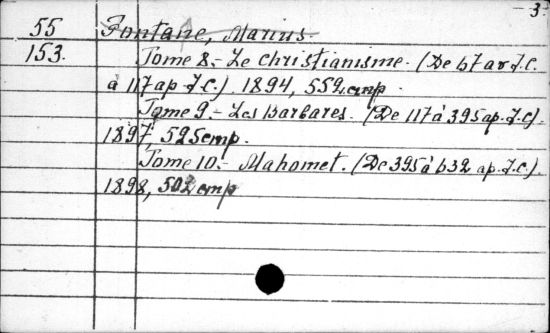 - 3 -
55 Fontane, Marius
153. Tome 8.- Le Christianisme. (De 67 av J.C.
à 117 ap J.C.). 1894, 552 emp.
Tome 9.- Les Barbares. (De 117 à 395 ap. J.C).
1897, 525 emp.
Tome 10.- Mahomet. (De 395 à 632 ap. J.C.).
1898, 502 emp